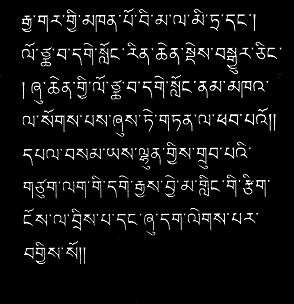 རྒྱ་གར་གྱི་མཁན་པོ་བི་མ་ལ་མི་ཏྲ་དང་།
ལོ་ཙྪ་བ་དགེ་སློང་རིན་ཆེན་སྡེས་བསྒྱུར་ཅིང་
། ཞུ་ཆེན་གྱི་ལོ་ཙྪ་བ་དགེ་སློང་ནམ་མཁའ་
ལ་སོགས་པས་ཞུས་ཏེ་གཏན་ལ་ཕབ་པའོ།།
དཔལ་བསམ་ཡས་ལྷུན་གྱིས་གྲུབ་པའི་
གཙུག་ལག་གི་དགེ་རྒྱས་བྱེ་མ་གླིང་གི་རྩིག་
ངོས་ལ་བྲིས་པ་དང་ཞུ་དག་ལེགས་པར་
བགྱིས་སོ།།